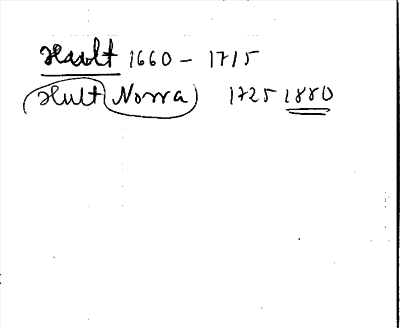 Hault 1660 - 1715
Hult (Norra) 1725 1880